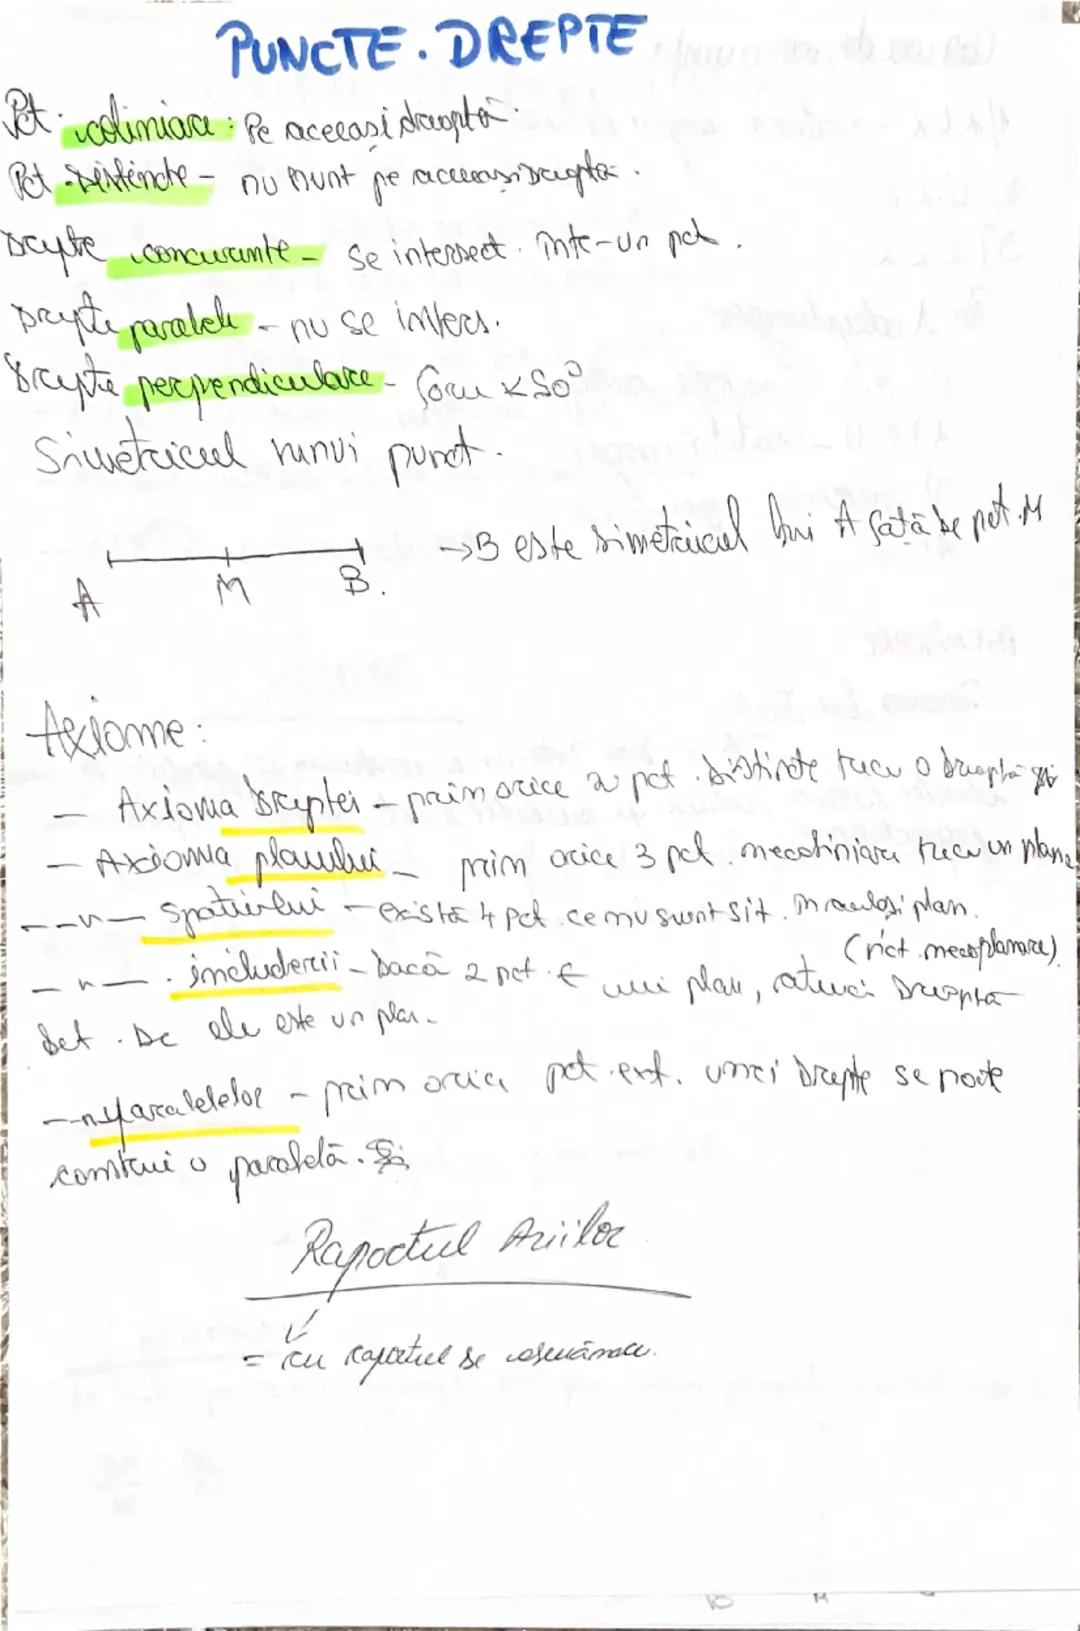 PUNCTE. DREPTE
Pct. coliniare: Pe aceeasi dreaptă.
Pct. distincte - nu sunt pe aceeasi dreapta.
Drepte concurante - se intersect. într-un pct.
Drepte paralele - nu se inters.
Drepte perpendiculare - form ∢ 90°
Simetricul unui punct.
→ B este simetricul lui A față de pct. M
A M B.
Axiome:
— Axioma dreptei - prin orice 2 pct. distincte trece o dreaptă
— Axioma planului - prin orice 3 pct. necoliniare trece un plan
—〃— spatiului - există 4 pct. ce nu sunt sit. în acelasi plan.
(pct. necoplanare)
—〃— . includerii - Dacă 2 pct. ∈ unui plan, atunci Dreapta
det. De ele este un plan.
—〃— paralelelor - prin orice pct. ext. unei Drepte se poate
construi o paralelă.
Raportul Ariilor
= cu raportul de asemănare.